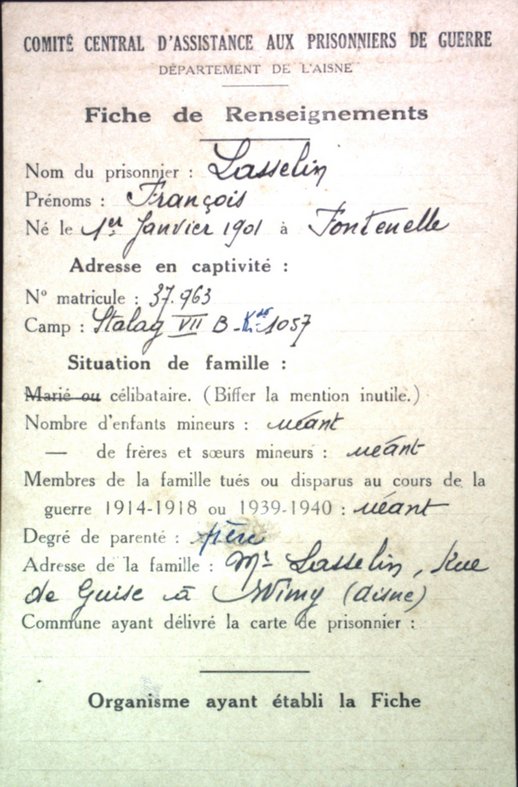 COMITÉ CENTRAL D'ASSISTANCE AUX PRISONNIERS DE GUERRE
DÉPARTEMENT DE L'AISNE
Fiche de Renseignements
Nom du prisonnier : Lasselin
Prénoms : François
Né le 1er Janvier 1901 à Fontenelle
Adresse en captivité :
N° matricule : 37.963
Camp : Stalag VII B - 1057
Situation de famille :
Marié ou célibataire. (Biffer la mention inutile.)
Nombre d'enfants mineurs : néant
— de frères et sœurs mineurs : néant
Membres de la famille tués ou disparus au cours de la
guerre 1914-1918 ou 1939-1940 : néant
Degré de parenté :
Adresse de la famille : Mr Lasselin, Rue
de Guise à Wimy (Aisne)
Commune ayant délivré la carte de prisonnier :
Organisme ayant établi la Fiche